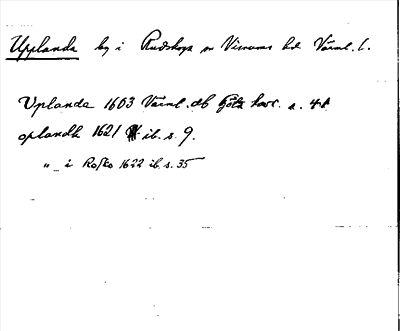 Upplanda by i Rudskoga sn Visnums hd Värml. l.
Uplanda 1603 Värml. db Götz havr. s. 4
oplandh 1621 ib. s. 9.
" _ i Rosko 1622 ib. s. 35